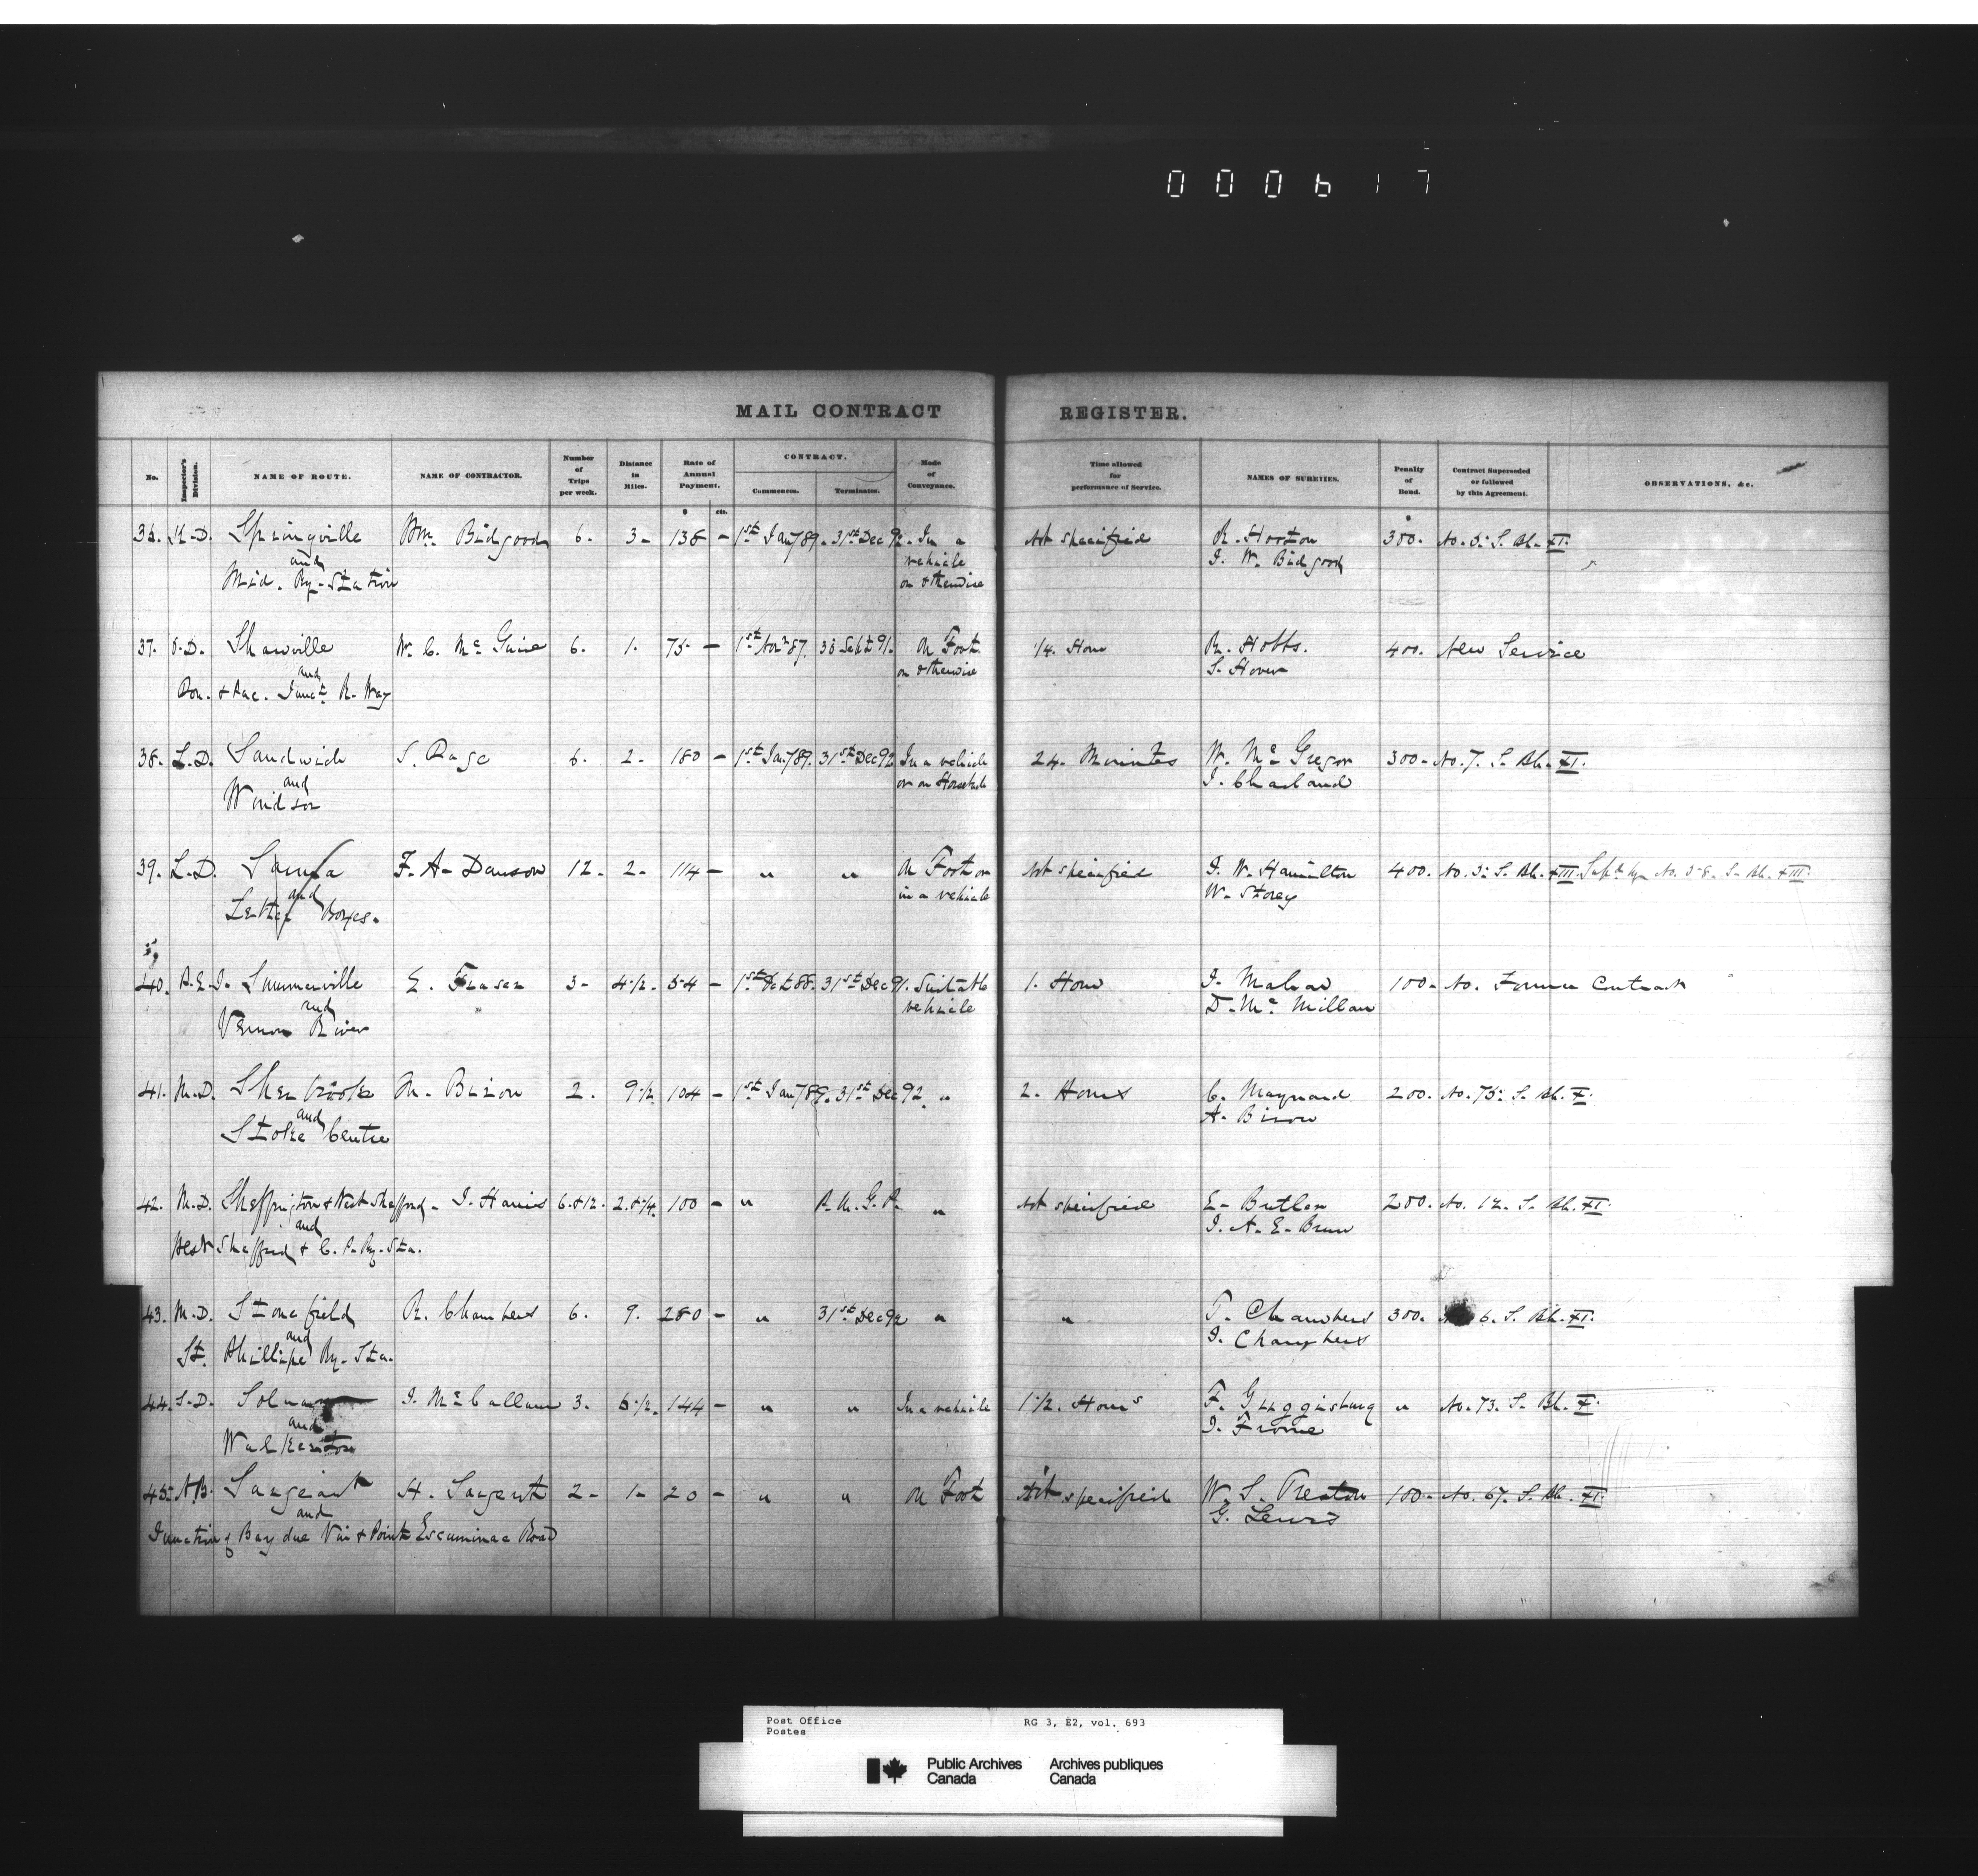 000617
MAIL CONTRACT REGISTER.
No. Inspector's Division. NAME OF ROUTE. NAME OF CONTRACTOR. Number of Trips per week. Distance in Miles. Rate of Annual Payment. CONTRACT. Commences. Terminates. Mode of Conveyance. Time allowed for performance of Service. NAMES OF SURETIES. Penalty of Bond. Contract Superseded or followed by this Agreement. OBSERVATIONS, &c.
$ cts. $
K.D. Springville Wm. Bidgood 6. 3- 138 - 1st Jany 89. 31st Dec 92. In a Not specified R. Horton 300. No. 5. S. Bk. XI.
and vehicle J. W. Bidgood
Mid. Ry. Station or otherwise
37. O.D. Shawville W. C. Mc Guire 6. 1. 75. - 1st Novr 87. 30 Sept 91. On Foot 1/4. Hour R. Hobbs. 400. New Service
and or otherwise S. Hover
Pon. & Pac. Junct. R. Way
38. L.D. Sandwich S. Page 6. 2. 180 - 1st Jany 89. 31st Dec 92 In a vehicle 24. Minutes W. Mc Gregor 300- No. 7. S. Bk. XI.
and or on Horseback J. Charland
Windsor
39. L.D. Sarnia F. A. Dawson 12. 2. 114 - " " On Foot or Not specified J. W. Hamilton 400. No. 5. S. Bk. XIII. Supd by No. 58. S. Bk. XIII.
and in a vehicle W. Storey
Letter Boxes.
40. P.E.I. Summerville E. Fraser 3- 4 1/2. 54 - 1st Oct 88. 31st Dec 91. Suitable 1. Hour J. 100- No. Former Contract
and vehicle D. Mc Millan
Vernon River
41. M.D. Sherbrooke M. Biron 2. 9 1/2 104 - 1st Jany 89. 31st Dec 92. " 2. Hours C. Maynard 200. No. 75. S. Bk. X.
and A. Biron
Stoke Centre
42. M.D. Sheffington & West Shefford - J. Harris 6. & 12. 2. & 1/4. 100 - " P.M.G.P. " Not specified E. Butler 200. No. 12. S. Bk. XI.
and J. A. E.
West Shefford & C. P. Ry. Sta.
43. M.D. Stonefield R. Chambers 6. 9. 280 - " 31st Dec 92 " " T. Chambers 300. 6. S. Bk. XI.
and J. Chambers
St. Phillipe Ry. Sta.
44. S.D. J. Mc Callum 3. 6 1/2. 144 - " " In a vehicle 1 1/2. Hours F. Gugginsburg " No. 73. S. Bk. X.
and J. Frome
Walkerton
45. N.B. Sargeant H. Sargent 2- 1- 20 - " " On Foot Not specified W. S. Preston 100- No. 67. S. Bk. XI.
and G. Lewis
Junction of Bay due Vin & Point Escuminac Road
Post Office RG 3, E2, vol. 693
Postes
Public Archives Archives publiques
Canada Canada